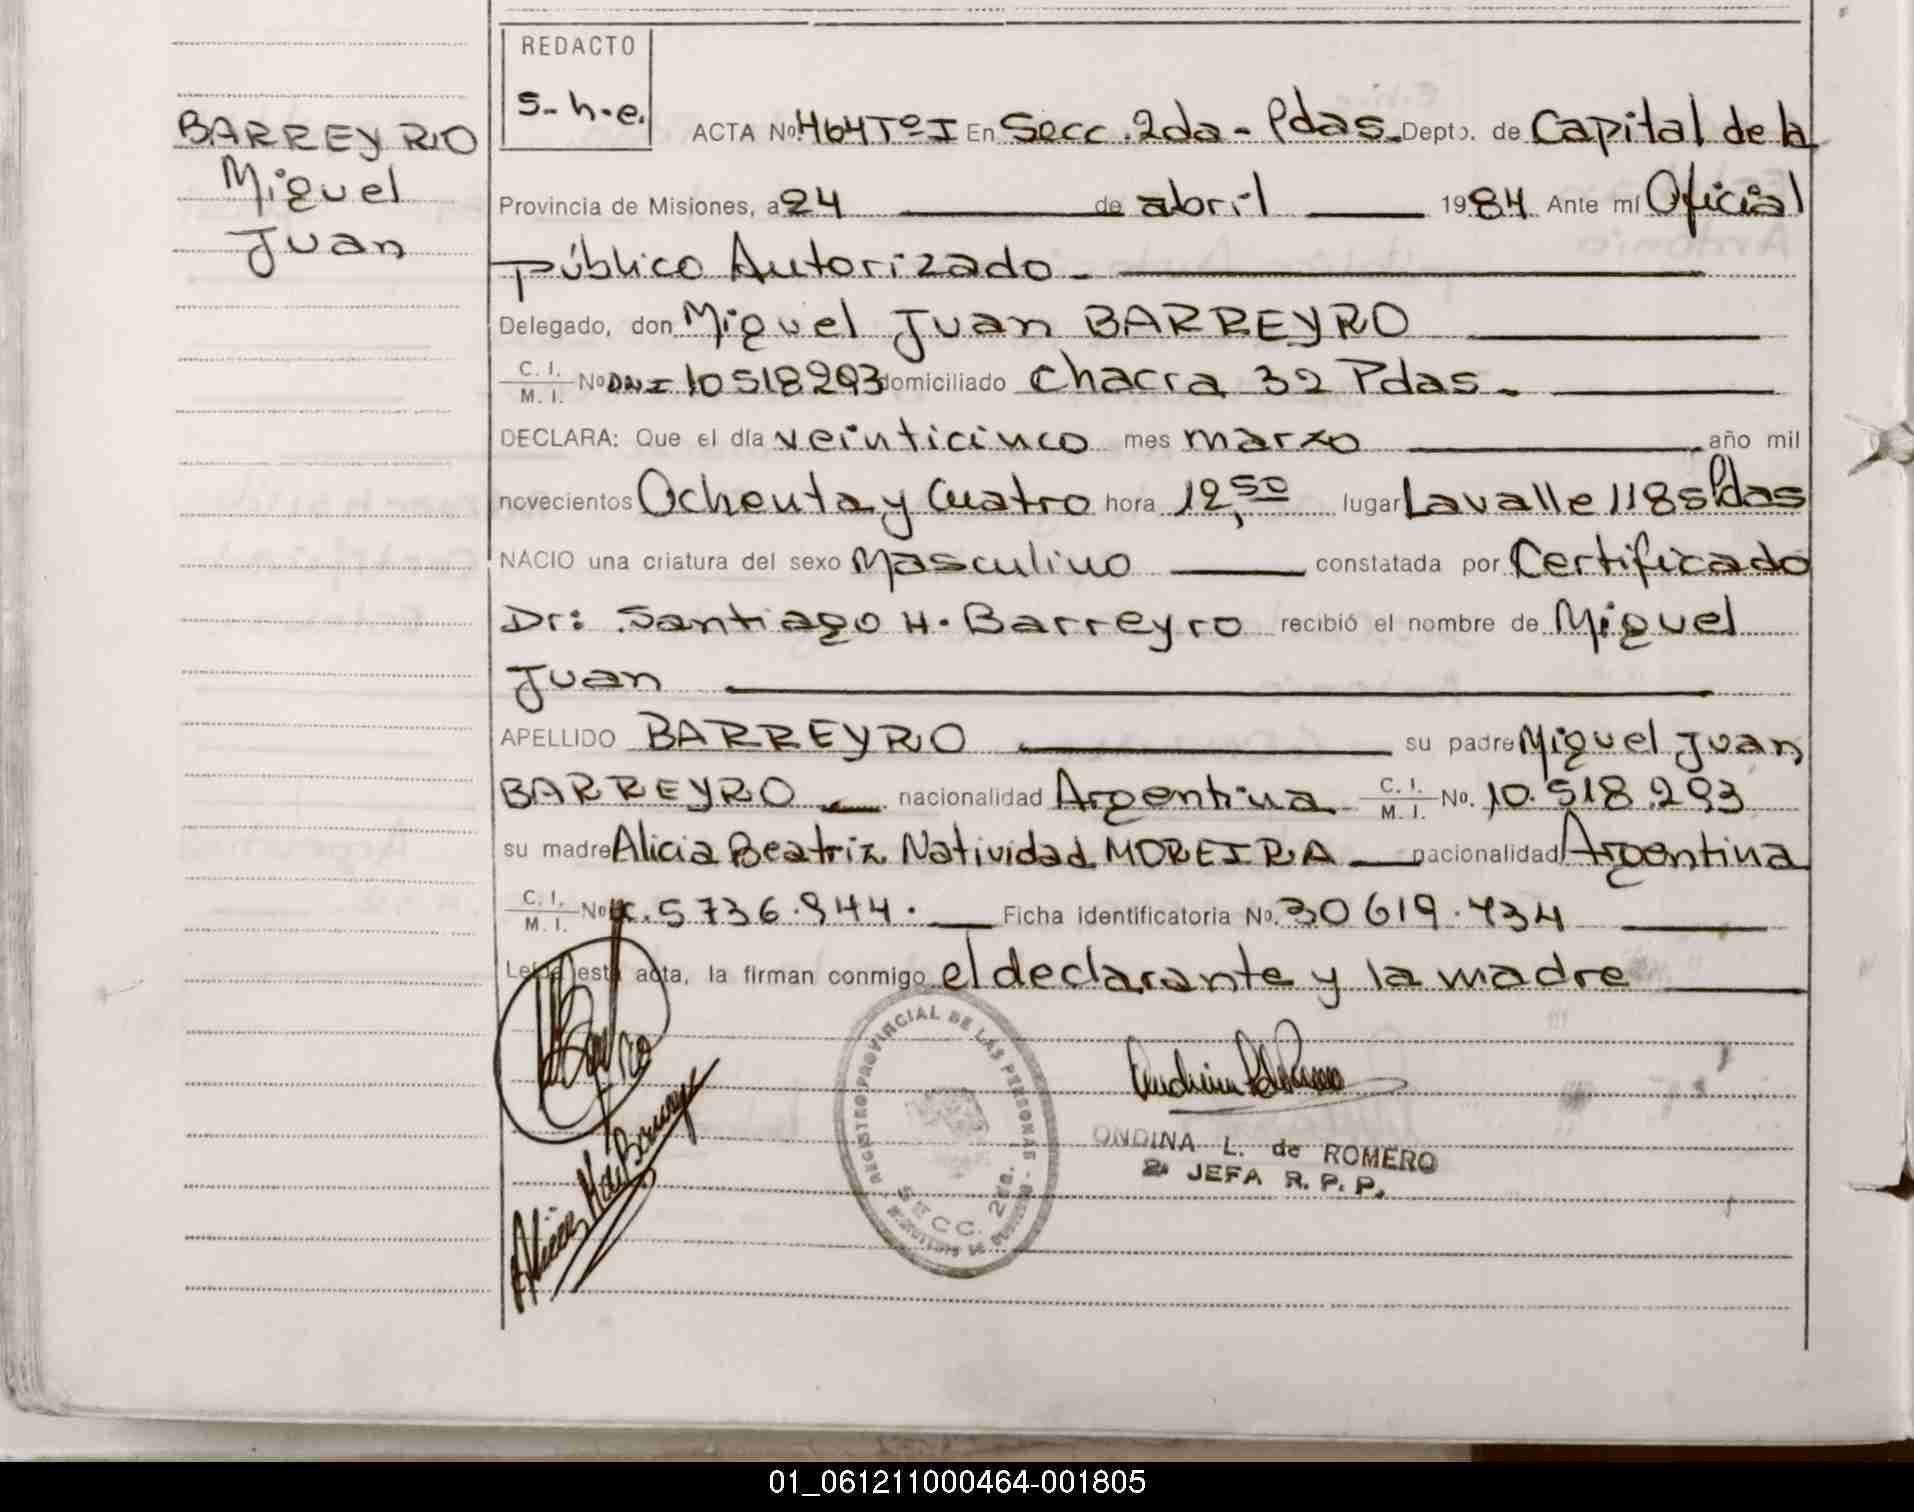 REDACTO
S-h-e.
BARREYRO
Miguel
Juan
ACTA Nº 464 Tº I En Secc. 2da - Pdas. Depto. de Capital de la
Provincia de Misiones, a 24 de abril 1984 Ante mí Oficial
público Autorizado -
Delegado, don Miguel Juan BARREYRO
C. I.
M. I. Nº DNI 10518293 domiciliado Chacra 32 Pdas.
DECLARA: Que el día veinticinco mes marzo año mil
novecientos Ochenta y Cuatro hora 12,50 lugar Lavalle 1185 Pdas
NACIO una criatura del sexo Masculino constatada por Certificado
Dr: Santiago H. Barreyro recibió el nombre de Miguel
Juan
APELLIDO BARREYRO su padre Miguel Juan
BARREYRO nacionalidad Argentina C. I. M. I. No. 10.518.293
su madre Alicia Beatriz Natividad MOREIRA nacionalidad Argentina
C. I.
M. I. Nº 5736.944. Ficha identificatoria No. 30619.434
Leída esta acta, la firman conmigo el declarante y la madre
REGISTRO PROVINCIAL DE LAS PERSONAS
SECC. 2da.
ONDINA L. de ROMERO
2ª JEFA R. P. P.
01_061211000464-001805